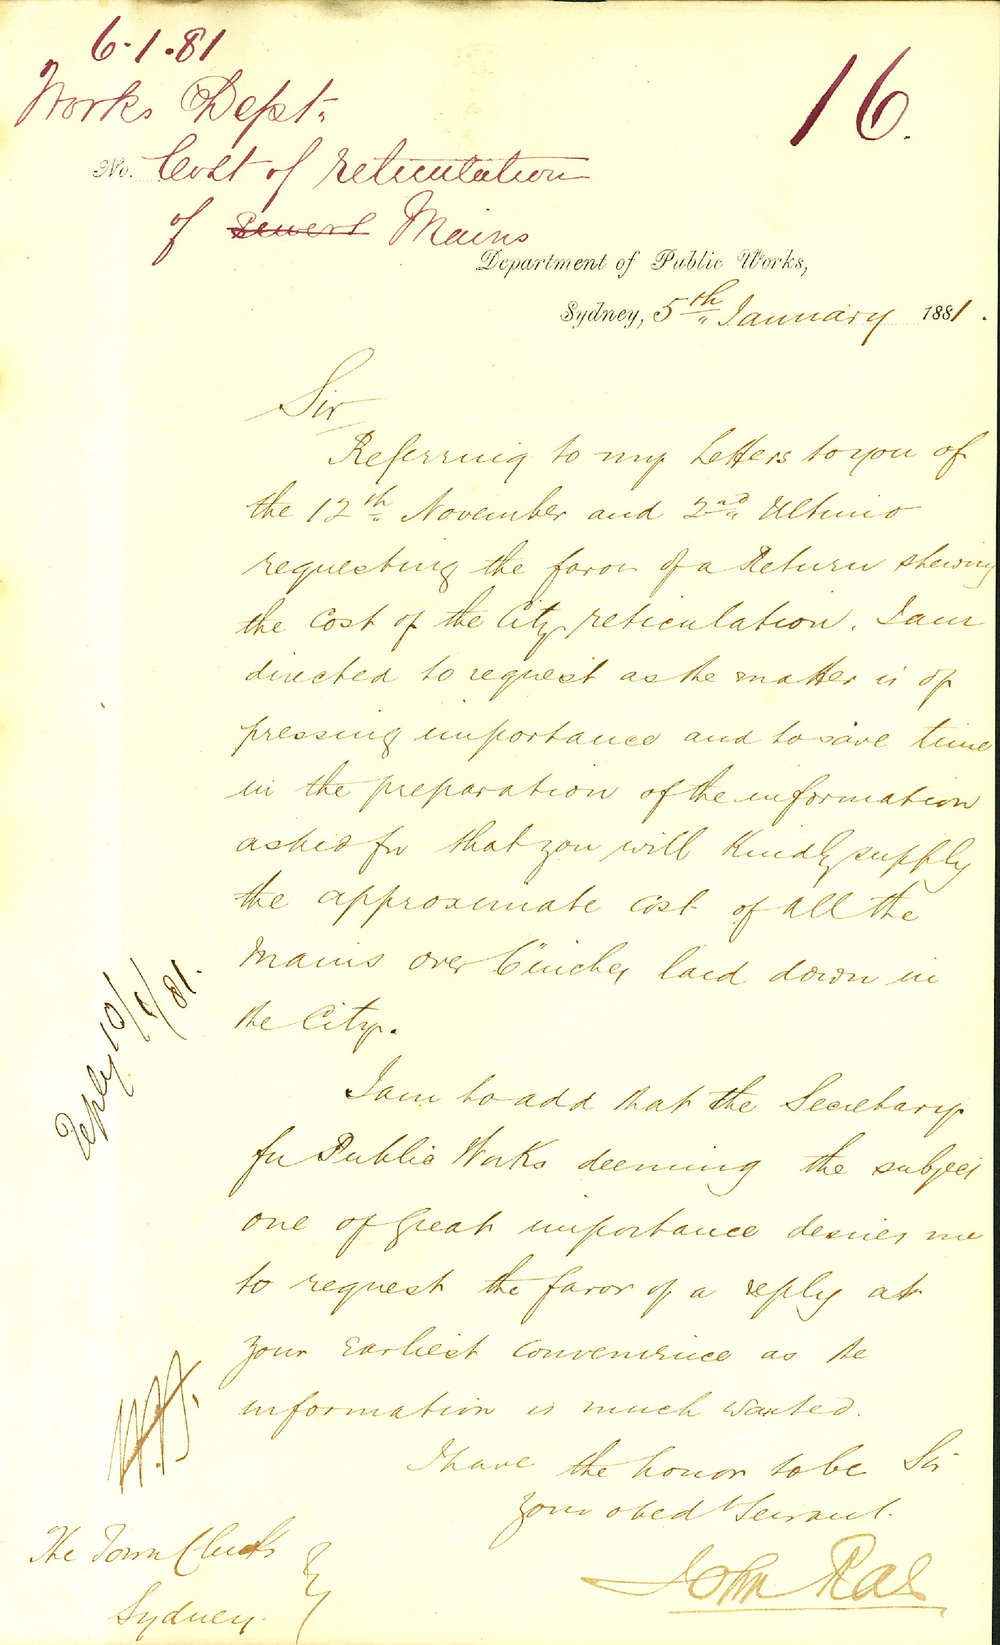 6.1.81
16.
Works Dept.
No. Cost of reticulation
of sewers Mains
Department of Public Works,
Sydney, 5th January 1881.
Sir
Referring to my Letters to you of
the 12th November and 2nd Ultimo
requesting the favor of a Return shewing
the cost of the City reticulation. I am
directed to request as the matter is of
pressing importance and to save time
in the preparation of the information
asked for that you will Kindly supply
the approximate cost of all the
Mains over 6 inches laid down in
the City.
Reply 10/1/81.
I am to add that the Secretary
for Public Works deeming the subject
one of great importance desires me
to request the favor of a reply at
your Earliest convenience as the
information is much wanted.
I have the honor to be Sir
your obedt Servant.
John Rae
The Town Clerk
Sydney.